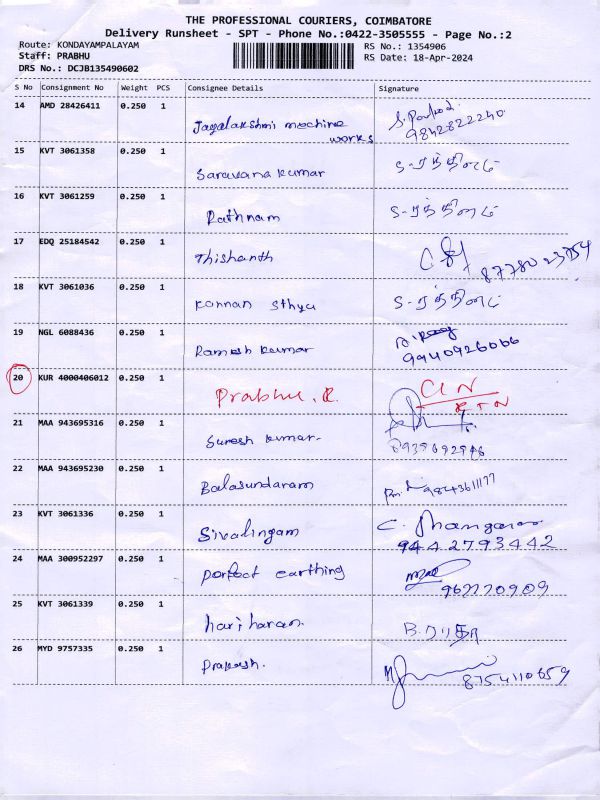 THE PROFESSIONAL COURIERS, COIMBATORE
Delivery Runsheet - SPT - Phone No.:0422-3505555 - Page No.:2
Route: KONDAYAMPALAYAM
Staff: PRABHU
DRS No.: DCJB135490602
RS No.: 1354906
RS Date: 18-Apr-2024
S No Consignment No Weight PCS Consignee Details Signature
14 AMD 28426411 0.250 1 Jayalakshmi machine works 9842822240
15 KVT 3061358 0.250 1 Saravana kumar S-ரத்தினம்
16 KVT 3061259 0.250 1 Rathnam S-ரத்தினம்
17 EDQ 25184542 0.250 1 Thishanth
18 KVT 3061036 0.250 1 Kannan Sthya S-ரத்தினம்
19 NGL 6088436 0.250 1 Ramesh kumar 9940926066
20 KUR 4000406012 0.250 1 Prabhu.R. C/N RTN
21 MAA 943695316 0.250 1 Suresh kumar.
22 MAA 943695230 0.250 1 Balasundaram 9843611177
23 KVT 3061336 0.250 1 Sivalingam 9442793442
24 MAA 300952297 0.250 1 Perfect earthing
25 KVT 3061339 0.250 1 hariharan.
26 MYD 9757335 0.250 1 Prakash. 8754110659